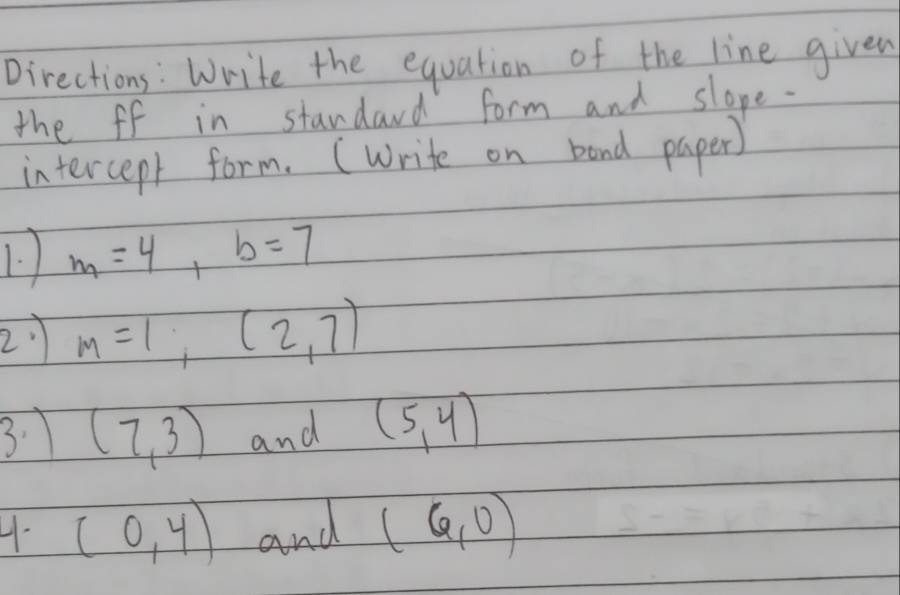 Directions: Write the equation of the line given
the ff in standard form and slope-
intercept form. (Write on bond paper)
1.) m=4, b=7
2.) m=1, (2,7)
3.) (7,3) and (5,4)
4. (0,4) and (6,0)